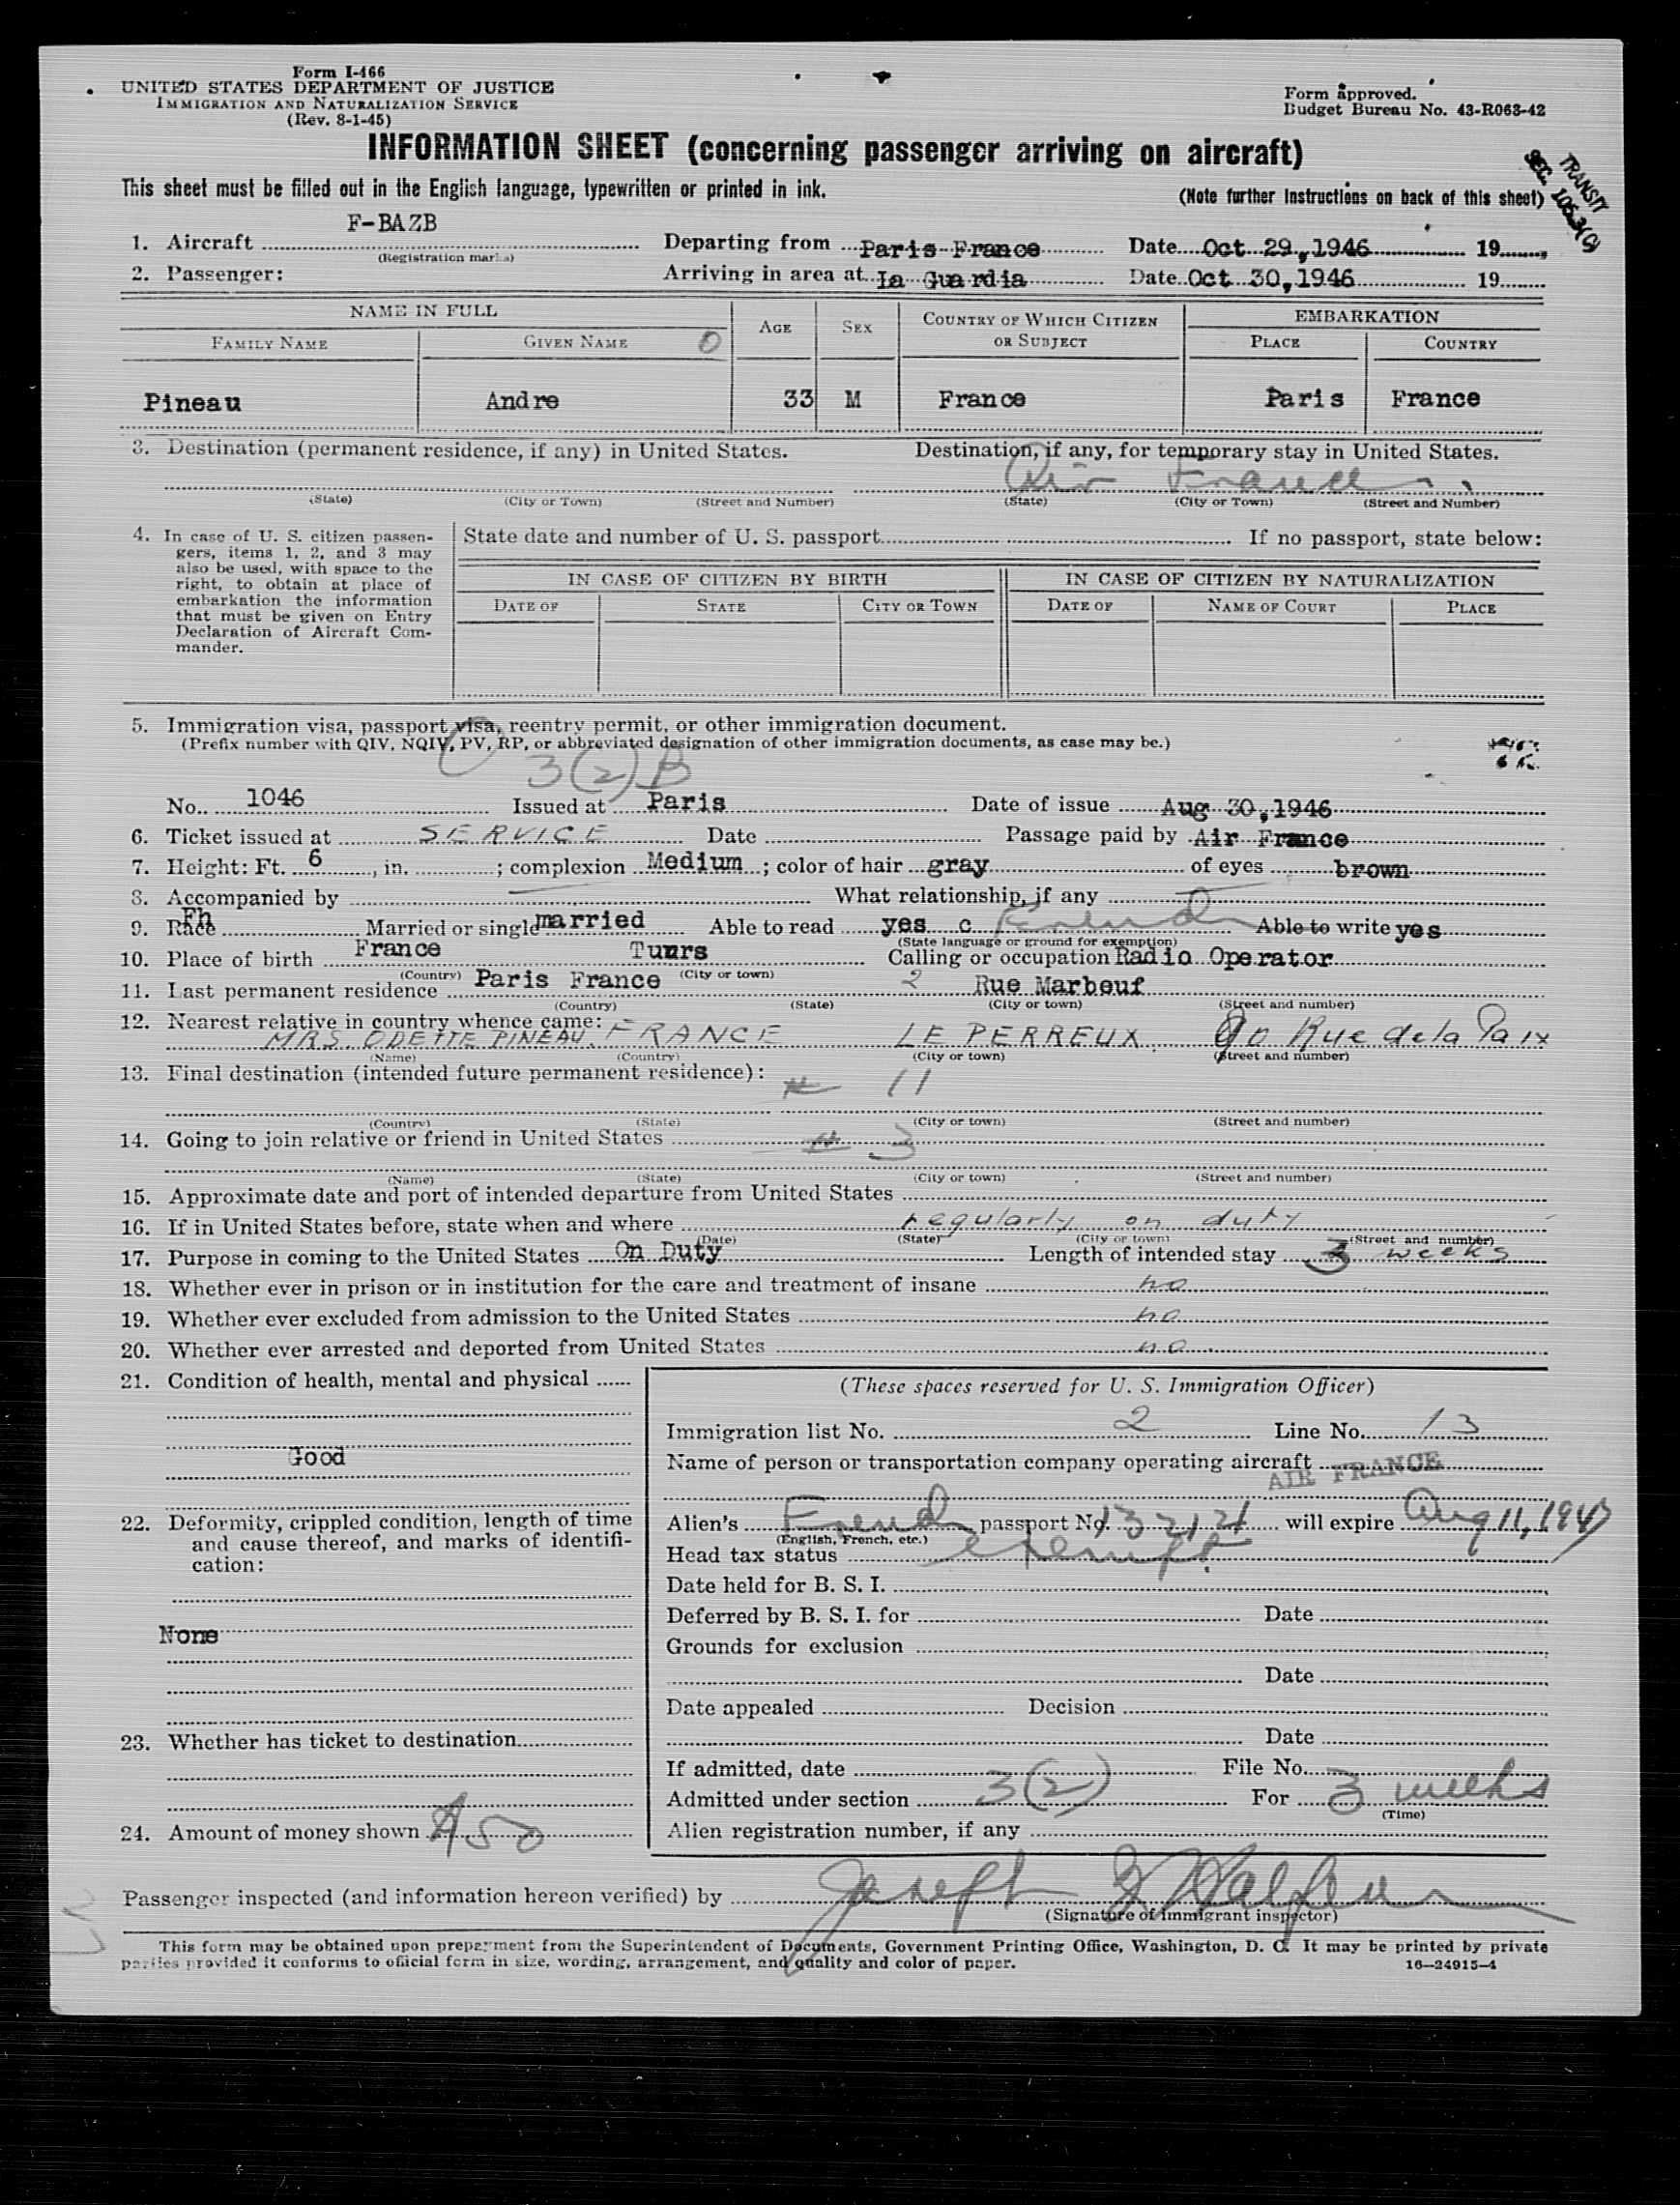 Form I-466
UNITED STATES DEPARTMENT OF JUSTICE
IMMIGRATION AND NATURALIZATION SERVICE
(Rev. 8-1-45)
Form approved.
Budget Bureau No. 43-R063-42
INFORMATION SHEET (concerning passenger arriving on aircraft)
TRANSIT
SEC. 105.3(c)
This sheet must be filled out in the English language, typewritten or printed in ink. (Note further instructions on back of this sheet)
1. Aircraft F-BAZB Departing from Paris France Date Oct 29, 1946 19
(Registration marks)
2. Passenger: Arriving in area at La Guardia Date Oct 30, 1946 19
NAME IN FULL AGE SEX COUNTRY OF WHICH CITIZEN OR SUBJECT EMBARKATION
FAMILY NAME GIVEN NAME PLACE COUNTRY
Pineau Andre 33 M France Paris France
3. Destination (permanent residence, if any) in United States. Destination, if any, for temporary stay in United States.
Air France
(State) (City or Town) (Street and Number) (State) (City or Town) (Street and Number)
4. In case of U. S. citizen passen-
gers, items 1, 2, and 3 may
also be used, with space to the
right, to obtain at place of
embarkation the information
that must be given on Entry
Declaration of Aircraft Com-
mander.
State date and number of U. S. passport If no passport, state below:
IN CASE OF CITIZEN BY BIRTH IN CASE OF CITIZEN BY NATURALIZATION
DATE OF STATE CITY OR TOWN DATE OF NAME OF COURT PLACE
5. Immigration visa, passport visa, reentry permit, or other immigration document.
(Prefix number with QIV, NQIV, PV, RP, or abbreviated designation of other immigration documents, as case may be.)
3(2)B
No. 1046 Issued at Paris Date of issue Aug 30, 1946
6. Ticket issued at SERVICE Date Passage paid by Air France
7. Height: Ft. 6, in. ; complexion Medium ; color of hair gray of eyes brown
8. Accompanied by What relationship, if any
9. Race Fh Married or single married Able to read yes c French Able to write yes
(State language or ground for exemption)
10. Place of birth France Tuurs Calling or occupation Radio Operator
(Country) (City or town)
11. Last permanent residence Paris France 2 Rue Marbeuf
(Country) (State) (City or town) (Street and number)
12. Nearest relative in country whence came:
MRS. ODETTE PINEAU. FRANCE LE PERREUX. 90 Rue de la Paix
(Name) (Country) (City or town) (Street and number)
13. Final destination (intended future permanent residence):
# 11
(Country) (State) (City or town) (Street and number)
14. Going to join relative or friend in United States # 3
(Name) (State) (City or town) (Street and number)
15. Approximate date and port of intended departure from United States
16. If in United States before, state when and where regularly on duty
(Date) (State) (City or town) (Street and number)
17. Purpose in coming to the United States On Duty Length of intended stay 3 weeks
18. Whether ever in prison or in institution for the care and treatment of insane no
19. Whether ever excluded from admission to the United States no
20. Whether ever arrested and deported from United States no
21. Condition of health, mental and physical
Good
22. Deformity, crippled condition, length of time
and cause thereof, and marks of identifi-
cation:
None
23. Whether has ticket to destination
24. Amount of money shown $50
(These spaces reserved for U. S. Immigration Officer)
Immigration list No. 2 Line No. 13
Name of person or transportation company operating aircraft AIR FRANCE
Alien's French passport No. 132121 will expire Aug 11, 1947
(English, French, etc.)
Head tax status exempt
Date held for B. S. I.
Deferred by B. S. I. for Date
Grounds for exclusion
Date
Date appealed Decision
Date
If admitted, date File No.
Admitted under section 3(2) For 3 weeks
(Time)
Alien registration number, if any
Passenger inspected (and information hereon verified) by Joseph
(Signature of immigrant inspector)
This form may be obtained upon prepayment from the Superintendent of Documents, Government Printing Office, Washington, D. C. It may be printed by private
parties provided it conforms to official form in size, wording, arrangement, and quality and color of paper. 16—24915-4